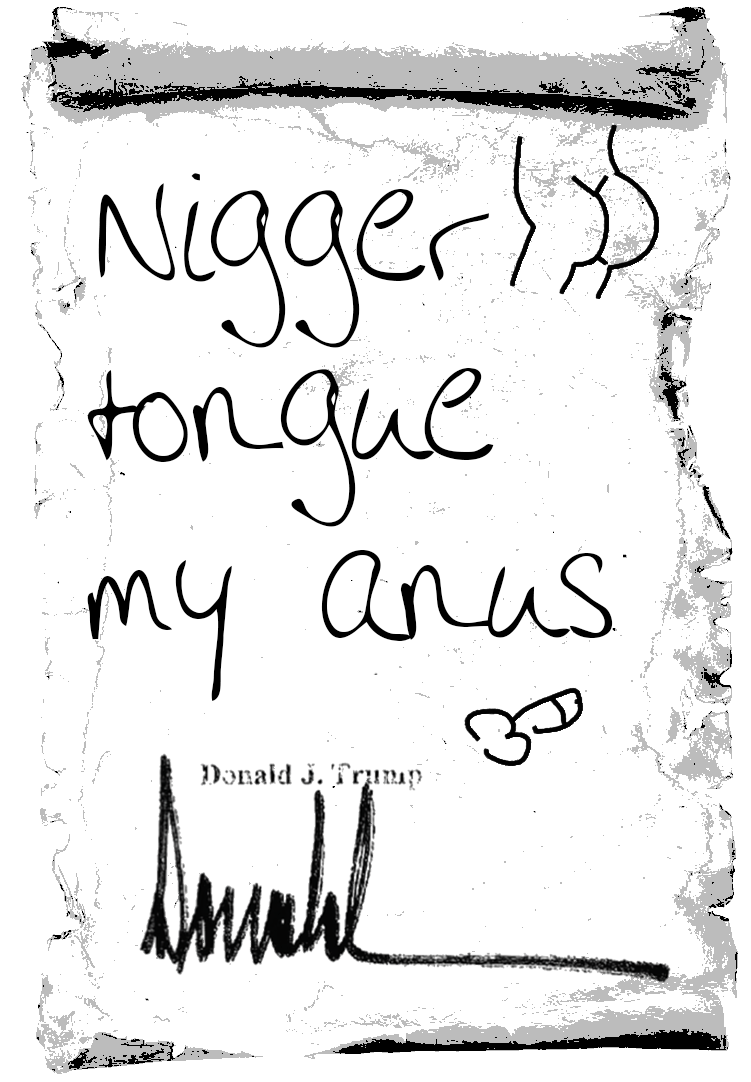 Nigger
tongue
my anus
Donald J. Trump